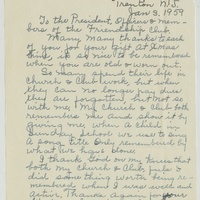 Trenton N.J.
Jan 3, 1959
To the President, Officers & mem-
bers of the Friendship Club
Many, Many thanks to each
of you for your Gift at Xmas
time, it is nice to be remembered
when you are old & worn out.
So many spend their life in
Church & Club work but when
they can no longer pay dues
they are forgotten, but not so
with me. My Church & Club both
remember me and show it by
giving me, when a child in
Sunday School we use to sing
A song title Only remembered by
what we have done
I thank God on my knees that
both my Church & Club feels I
did some thing worth being re-
membered when I was well and
active, Thanks again for your